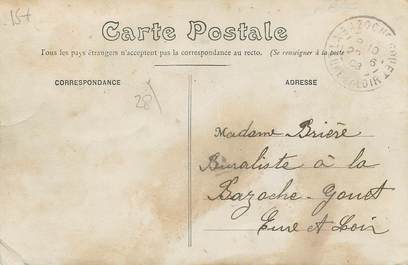 15+
Carte Postale
Tous les pays étrangers n'acceptent pas la correspondance au recto. (Se renseigner à la poste
CORRESPONDANCE
ADRESSE
28
Madame Brière
Buraliste à la
Bazoche-Gouet
Eure et Loir